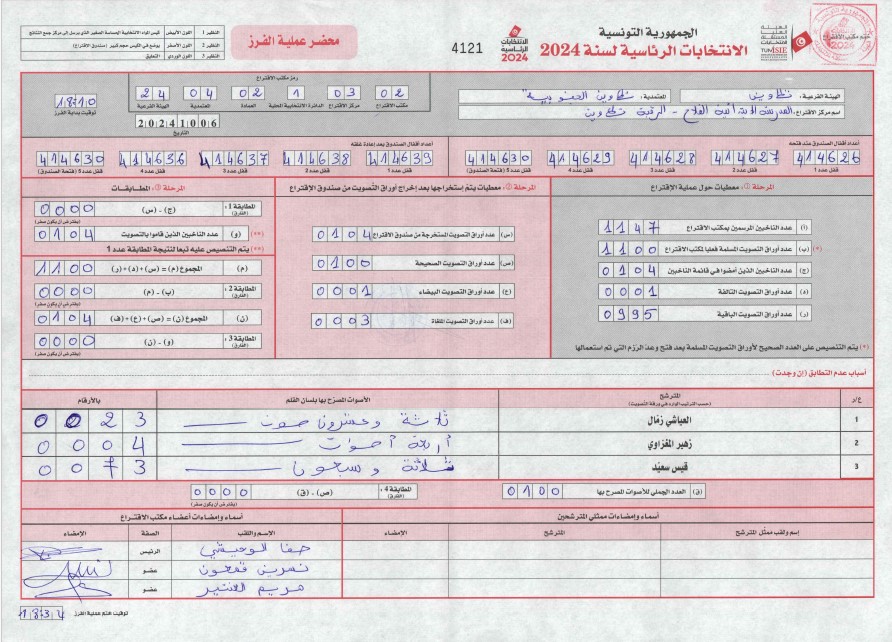 الجمهورية التونسية
الانتخابات الرئاسية لسنة 2024
4121
محضر عملية الفرز
ختم مكتب الإقتراع
الهيئة الفرعية: تطاوين
المعتمدية: تطاوين الجنوبية
اسم مركز الإقتراع: المدرسة الابتدائية الفلاح - الرقبة تطاوين
رمز مكتب الإقتراع
02 03 1 02 04 24
مكتب الإقتراع مركز الإقتراع الدائرة الانتخابية المحلية العمادة المعتمدية الهيئة الفرعية
20241006
التاريخ
18 10
توقيت بداية الفرز
أعداد أقفال الصندوق عند فتحه
414626 414627 414628 414629 414630
قفل عدد 1 قفل عدد 2 قفل عدد 3 قفل عدد 4 قفل عدد 5 (فتحة الصندوق)
أعداد أقفال الصندوق بعد إعادة غلقه
414639 414638 414637 414636 414630
قفل عدد 1 قفل عدد 2 قفل عدد 3 قفل عدد 4 قفل عدد 5 (فتحة الصندوق)
المرحلة 1: معطيات حول عملية الإقتراع
(أ) عدد الناخبين المرسمين بمكتب الاقتراع 1147
(ب) عدد أوراق التصويت المسلمة فعليا لمكتب الاقتراع 1100 (*)
(ج) عدد الناخبين الذين أمضوا في قائمة الناخبين 0104
(د) عدد أوراق التصويت التالفة 0001
(ر) عدد أوراق التصويت الباقية 0995
(*) يتم التنصيص على العدد الصحيح لأوراق التصويت المسلمة بعد فتح وعد الرزم التي تم استعمالها
المرحلة 2: معطيات يتم إستخراجها بعد إخراج أوراق التصويت من صندوق الإقتراع
(س) عدد أوراق التصويت المستخرجة من صندوق الاقتراع 0104
(ص) عدد أوراق التصويت الصحيحة 0100
(ع) عدد أوراق التصويت البيضاء 0001
(ف) عدد أوراق التصويت الملغاة 0003
المرحلة 3: المطابقات
المطابقة 1: (الفارق) (ج) - (س) 0000
(يفترض أن يكون صفر)
(و) عدد الناخبين الذين قاموا بالتصويت 0104 (**)
(**) يتم التنصيص عليه تبعا لنتيجة المطابقة عدد 1
(م) المجموع (م) = (س) + (د) + (ر) 1100
المطابقة 2: (الفارق) (ب) - (م) 0000
(يفترض أن يكون صفر)
(ن) المجموع (ن) = (ص) + (ع) + (ف) 0104
المطابقة 3: (الفارق) (و) - (ن) 0000
(يفترض أن يكون صفر)
أسباب عدم التطابق (إن وجدت)
ع/ر المترشح الأصوات المصرح بها بلسان القلم بالأرقام
(حسب الترتيب الوارد في ورقة التصويت)
1 العياشي زمّال ثلاثة وعشرون صوت 0023
2 زهير المغزاوي أربعة أصوات 0004
3 قيس سعيّد ثلاثة وسبعون 0073
(ق) العدد الجملي للأصوات المصرح بها 0100
المطابقة 4: (الفارق) (ص) - (ق) 0000
(يفترض أن يكون صفر)
أسماء وإمضاءات ممثلي المترشحين
إسم ولقب ممثل المترشح المترشح الإمضاء
أسماء وإمضاءات أعضاء مكتب الاقتراع
الإسم واللقب الصفة الإمضاء
الرئيس
نسرين عضو
مريم عضو
توقيت ختم عملية الفرز 18 34